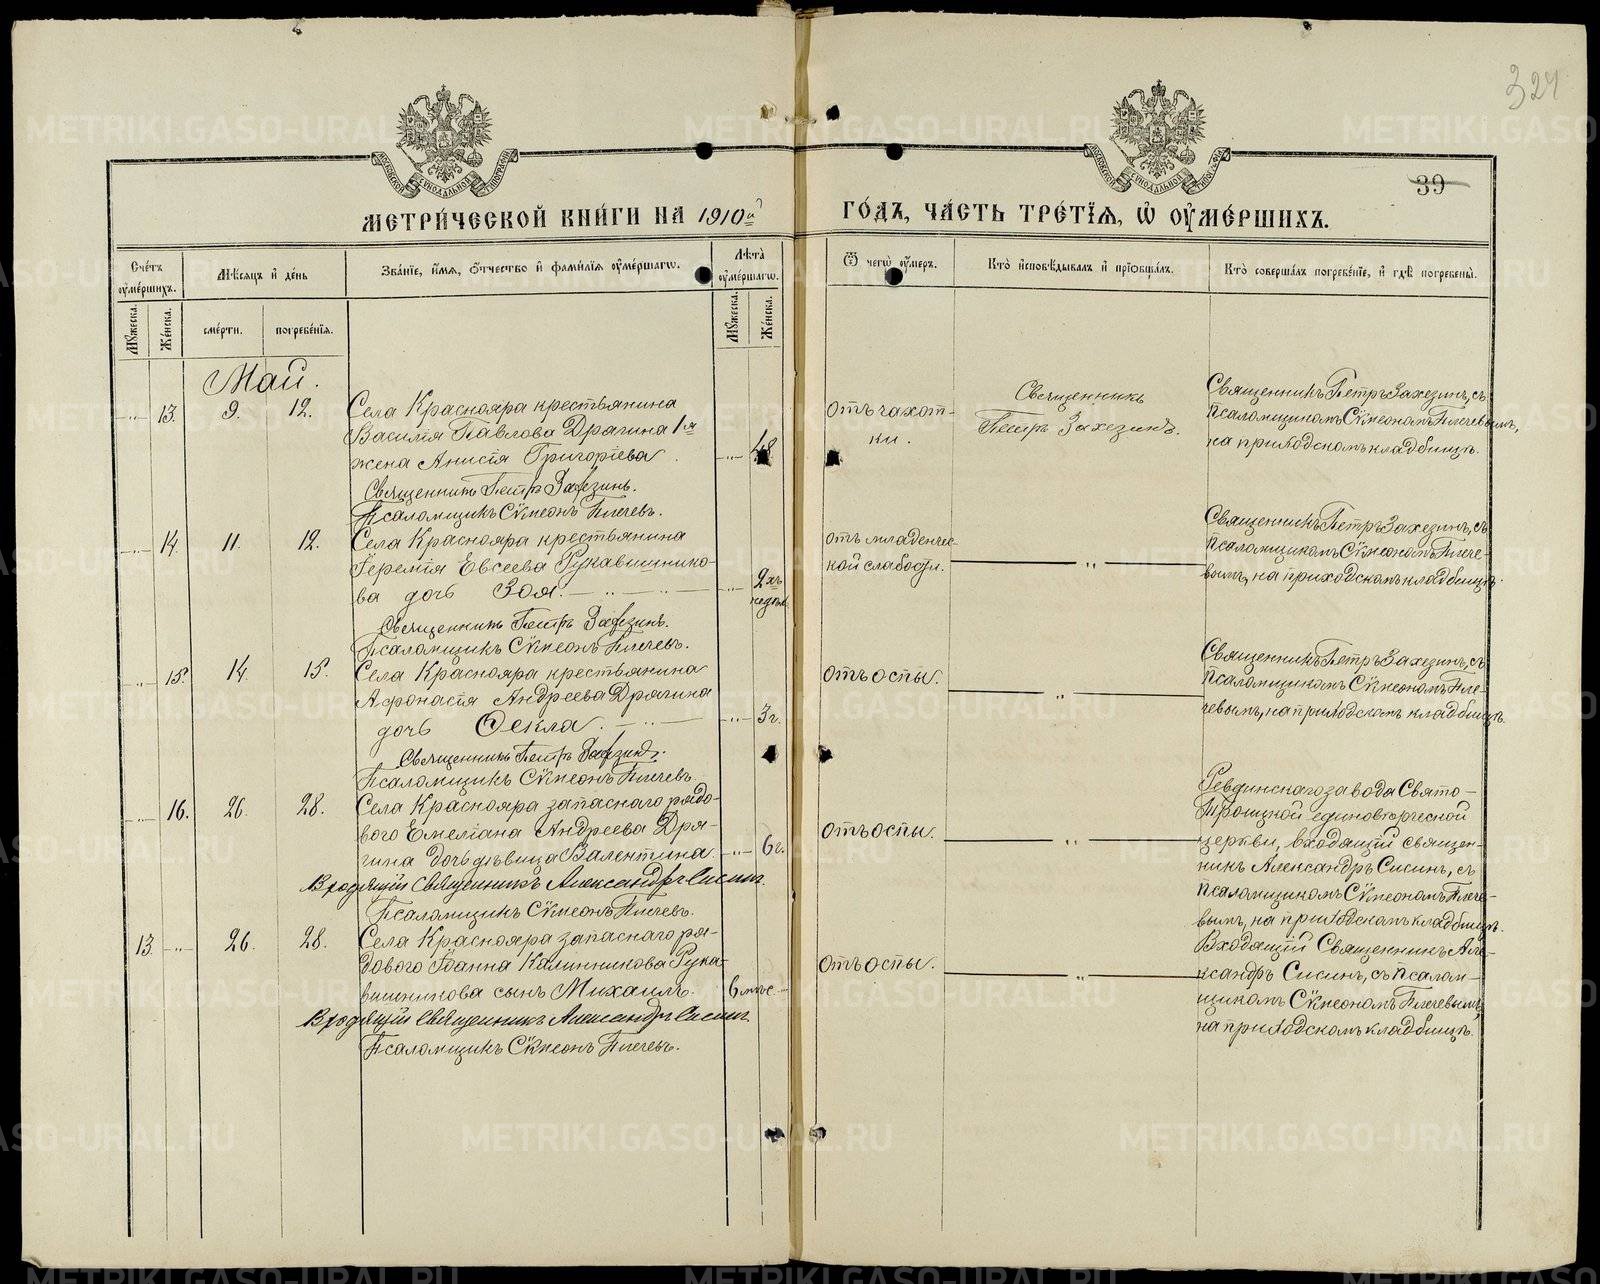 324
39
МОСКОВСКОЙ СУНОДАЛЬНОЙ ТИПОГРАФІИ
МОСКОВСКОЙ СУНОДАЛЬНОЙ ТИПОГРАФІИ
МЕТРИ́ЧЕСКОЙ КНИ́ГИ НА 1910й
ГО́ДЪ, ЧА́СТЬ ТРЕ́ТІѦ, Ѡ҆ ОУ҆МЕ́РШИХЪ.
Сче́тъ оу҆ме́ршихъ.
Мѣ́сяцъ и҆ де́нь
Зва́ніе, и҆́мя, ѻ҆́тчество и҆ фами́лія оу҆ме́ршагѡ.
Лѣ́та оу҆ме́ршагѡ.
Ѿ чегѡ̀ оу҆́меръ.
Кто̀ и҆сповѣ́дывалъ и҆ прїѡбща́лъ.
Кто̀ соверша́лъ погребе́ніе, и҆ гдѣ̀ погребены̀.
Мꙋ́жеска.
Же́нска.
сме́рти.
погребе́нія.
Мꙋ́жеска.
Же́нска.
Май.
-„- 13. 9. 12.
Села Краснояра крестьянина
Василія Павлова Дрягина 1я
жена Анисія Григоріева.
-„- 48.
Священникъ Петръ Захезинъ.
Псаломщикъ Сѵмеонъ Плечевъ.
Отъ чахот-
ки.
Священникъ
Петръ Захезинъ.
Священникъ Петръ Захезинъ, съ
псаломщикомъ Сѵмеономъ Плечевымъ,
на приходскомъ кладбищѣ.
-„- 14. 11. 12.
Села Краснояра крестьянина
Іеремія Евсеева Рукавишнико-
ва дочь Зоя.
-„- 2хъ
недѣль
Священникъ Петръ Захезинъ.
Псаломщикъ Сѵмеонъ Плечевъ.
отъ младенчес-
кой слабости.
„
Священникъ Петръ Захезинъ, съ
псаломщикомъ Сѵмеономъ Плече-
вымъ, на приходскомъ кладбищѣ.
-„- 15. 14. 15.
Села Краснояра крестьянина
Афонасія Андреева Дрягина
дочь Ѳекла.
-„- 3г.
Священникъ Петръ Захезинъ.
Псаломщикъ Сѵмеонъ Плечевъ.
отъ оспы.
„
Священникъ Петръ Захезинъ, съ
псаломщикомъ Сѵмеономъ Пле-
чевымъ, на приходскомъ кладбищѣ.
-„- 16. 26. 28.
Села Краснояра запаснаго рядо-
вого Емеліана Андреева Дря-
гина дочь дѣвица Валентина
-„- 6г.
Входящій священникъ Александръ Сисинъ.
Псаломщикъ Сѵмеонъ Плечевъ.
отъ оспы.
„
Ревдинскаго завода Свято-
Троицкой единовѣрческой
церкви, входящій священ-
никъ Александръ Сисинъ, съ
псаломщикомъ Сѵмеономъ Плече-
вымъ, на приходскомъ кладбищѣ.
13 -„- 26. 28.
Села Краснояра запаснаго ря-
дового Іоанна Калинникова Рука-
вишникова сынъ Михаилъ.
6 мѣс.
Входящій священникъ Александръ Сисинъ
Псаломщикъ Сѵмеонъ Плечевъ.
Отъ оспы.
„
Входящій Священникъ Але-
ксандръ Сисинъ, съ псалом-
щикомъ Сѵмеономъ Плечевымъ,
на приходскомъ кладбищѣ.
METRIKI.GASO-URAL.RU